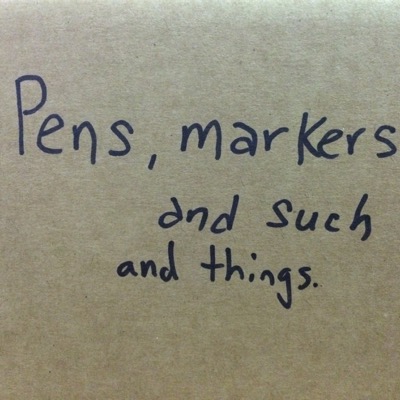 Pens, markers
and such
and things.